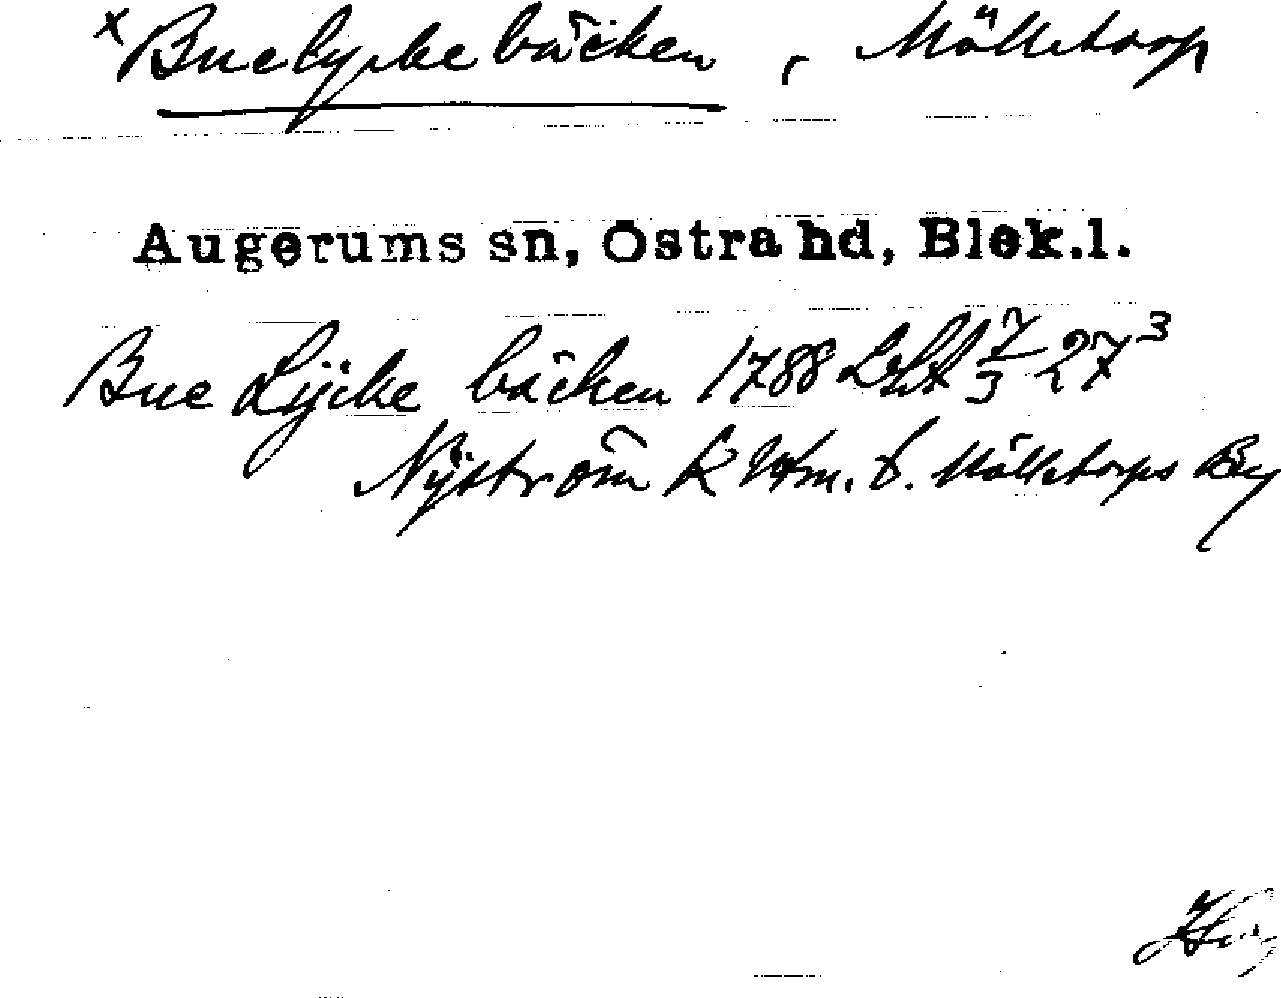 x Buelyckebäcken, Mölletorp
Augerums sn, Östra hd, Blek.l.
Bue Lÿcke bäcken 1788 LSA 7/3 27³
Nÿström K Htm. t. Mölletorps By